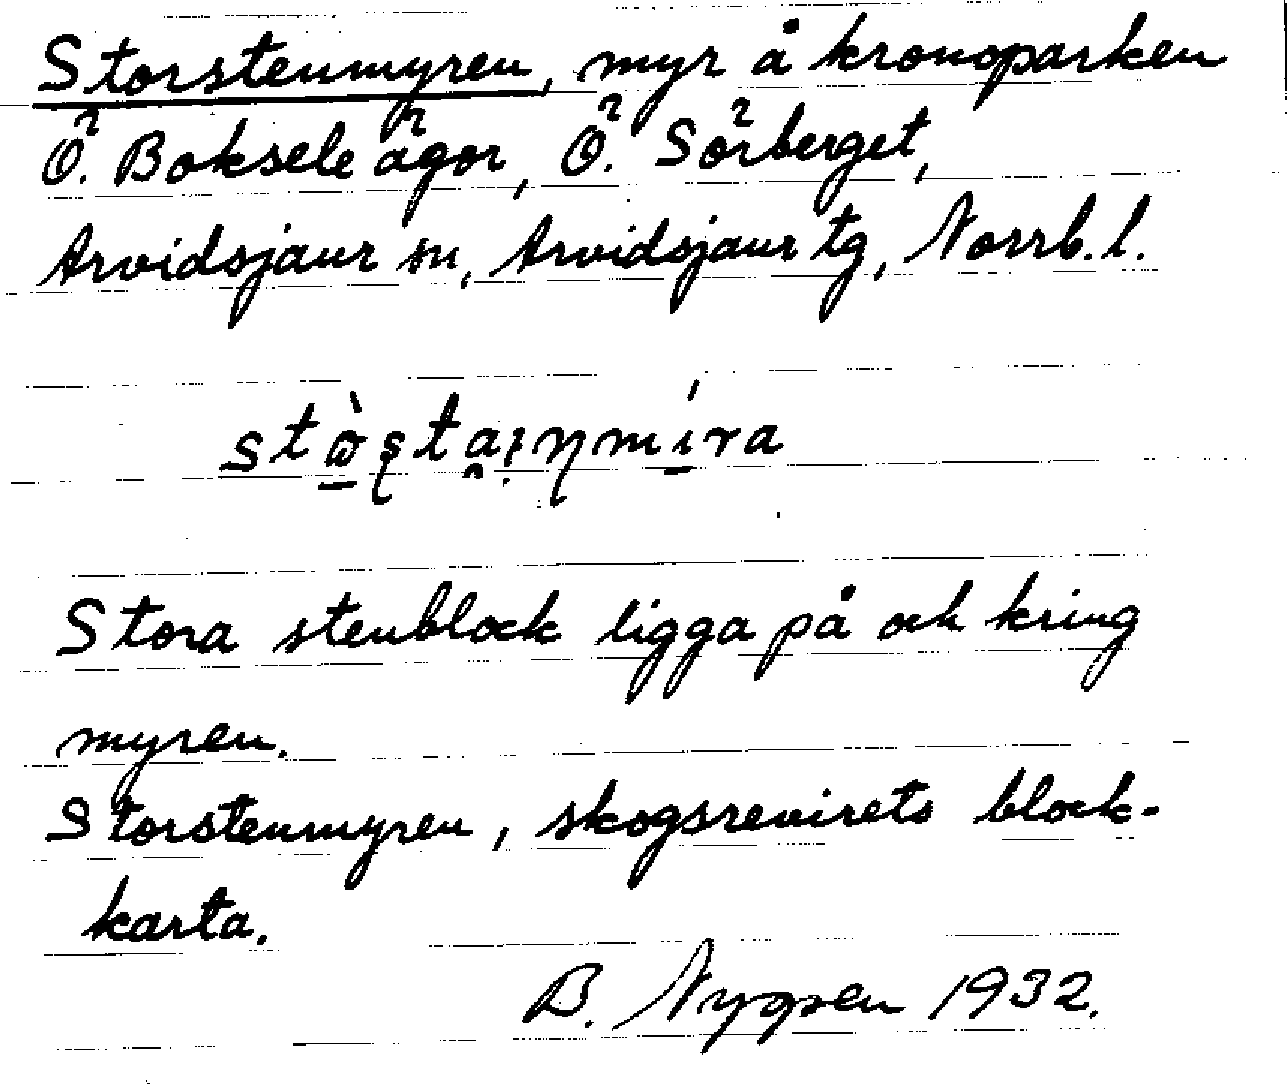 Storstenmyren, myr å kronoparken
Ö. Boksele ägor, Ö. Sörberget,
Arvidsjaur sn, Arvidsjaur tg, Norrb. l.
Stora stenblock ligga på och kring
myren.
Storstenmyren, skogsrevirets block-
karta.
B. Nygren 1932.